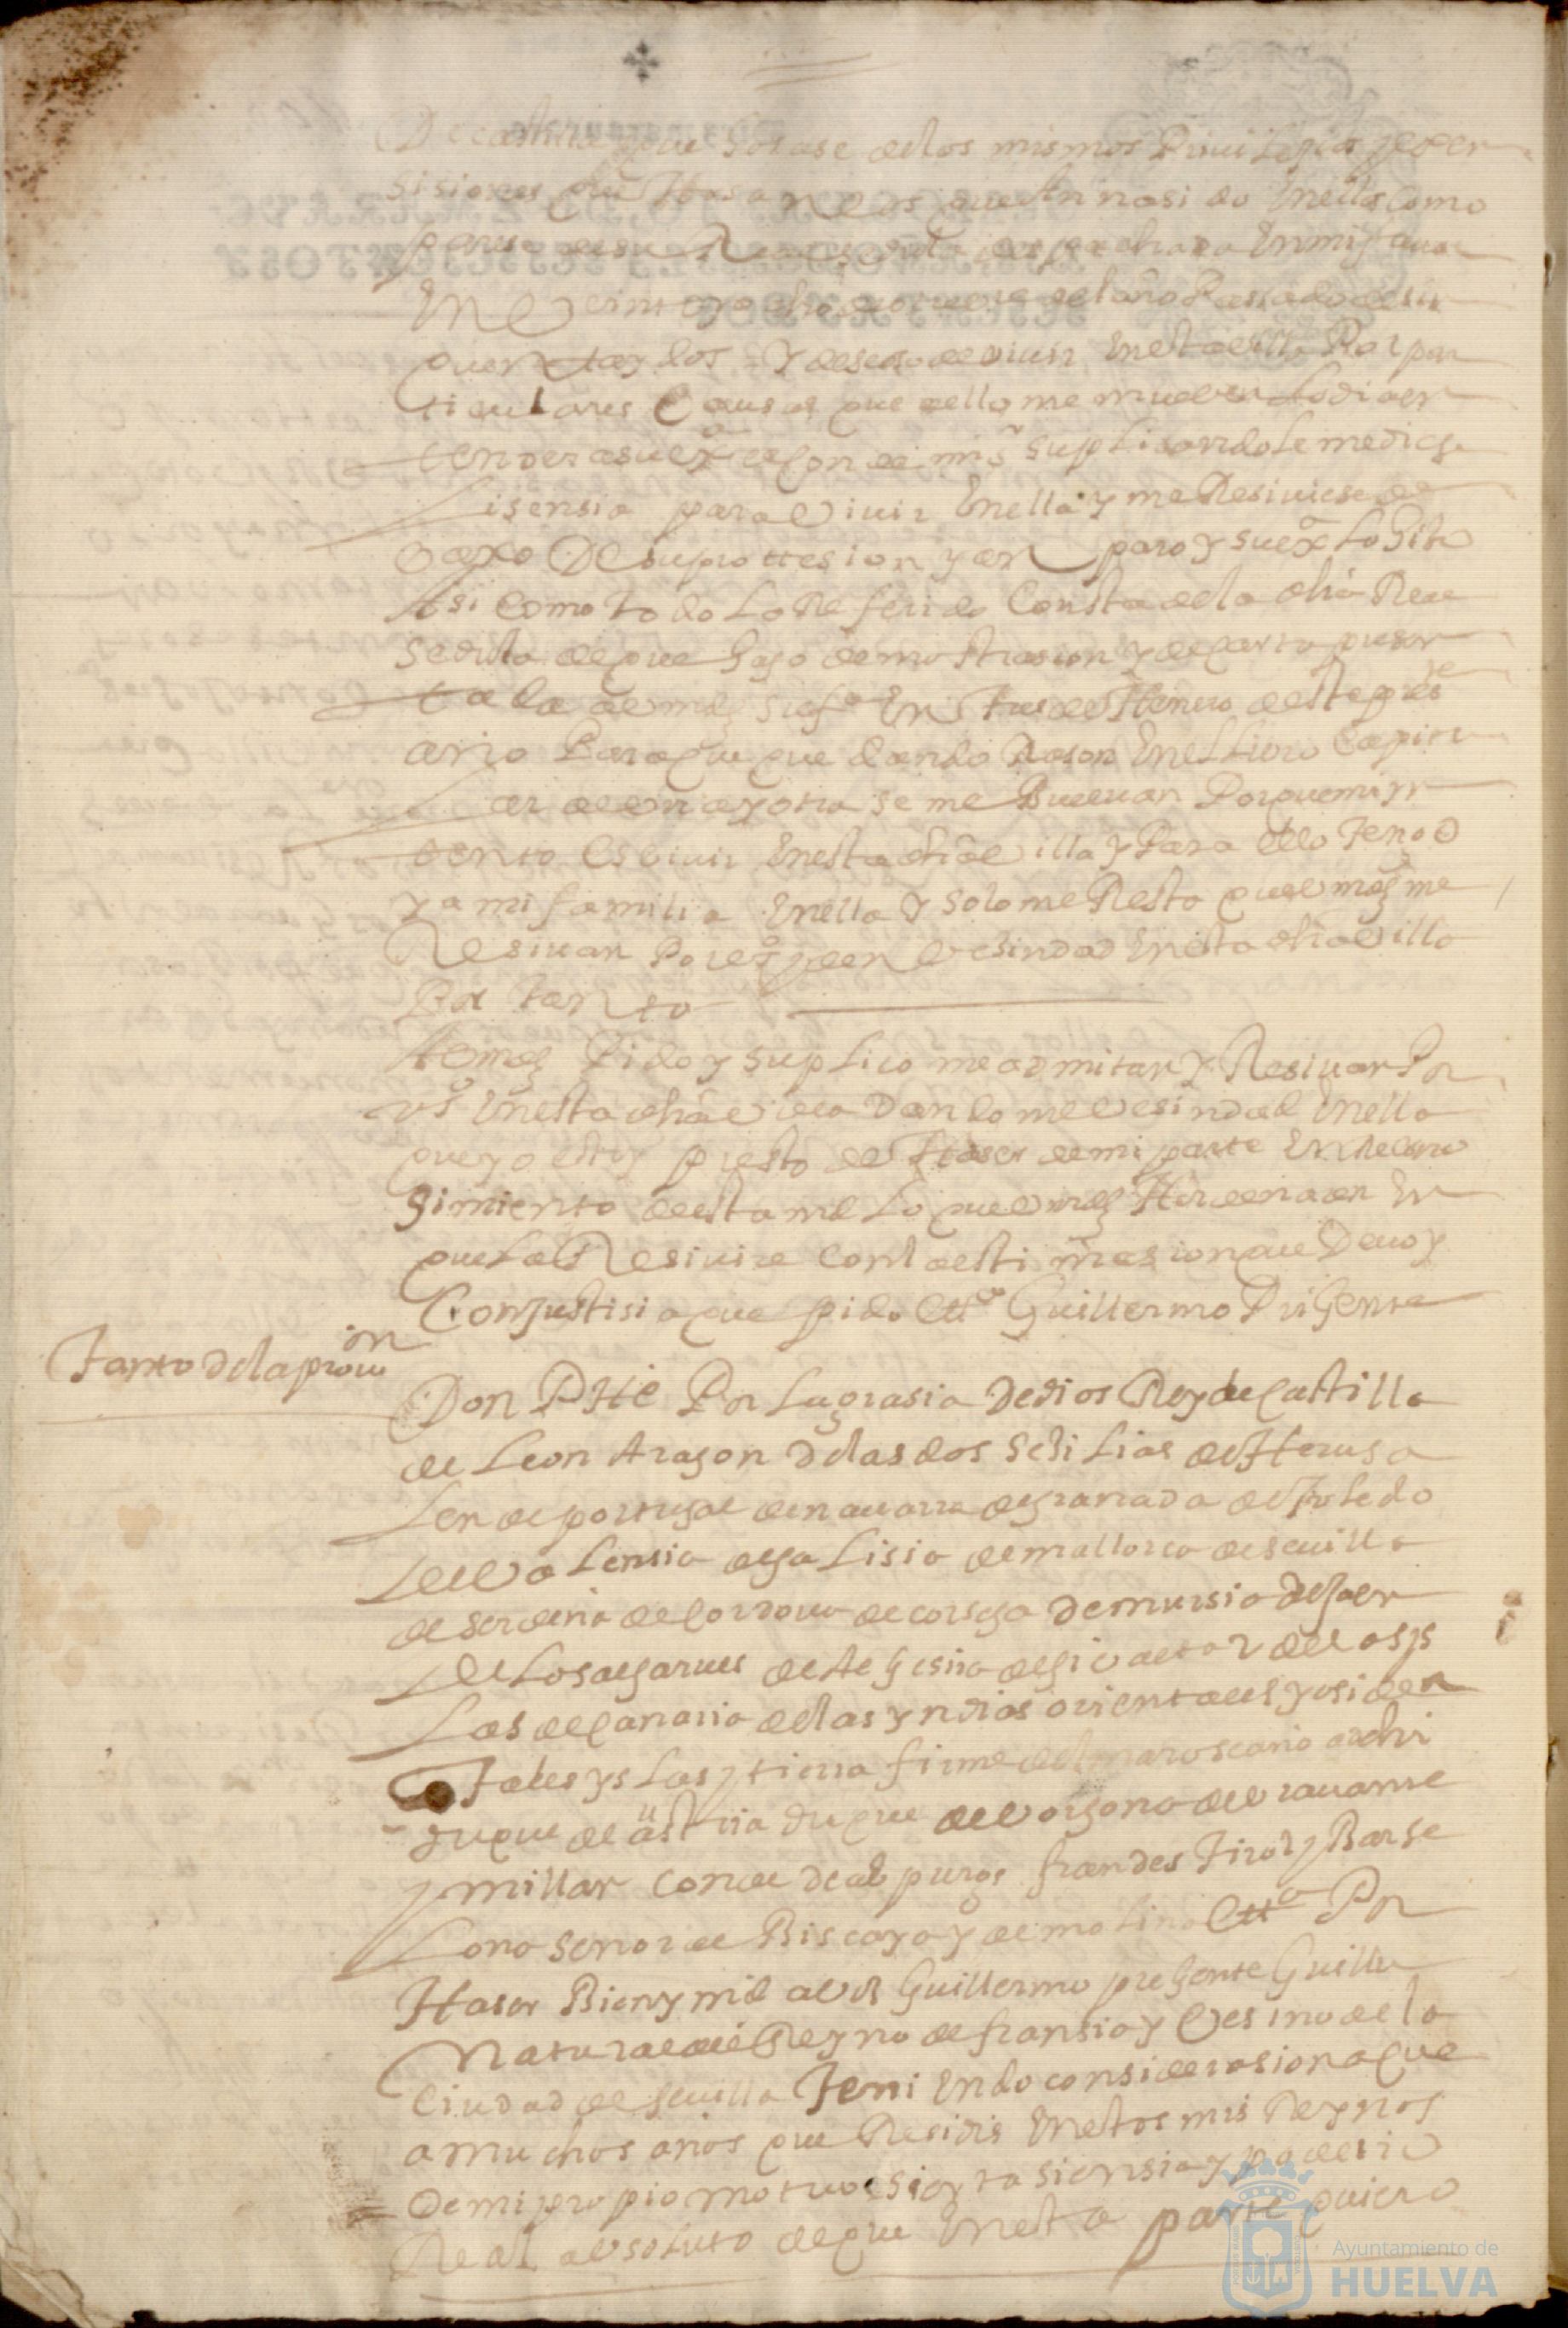 De castilla y que gosase de los mismos Priuilegios y exen
sisiones que Gosan los que An nasido En ellos Como
parese de su Real sedula despachada En mi fauor
En Veintiyocho de otubre del año Passado de
quarenta y dos Y deseando viuir En esta villa Por par
ticulares Causas que a ello me mueven
a su exª el Conde mi sr suplicandole me diese
Lisensia para Viuir En ella y me Resiuiese de
vaxo De su prottesion y am paro y su exª Lo Hizo
Asi Como Todo Lo Referido Consta de la dha Real
Sedula de que Hago demostrasion y de carta
de su exª En Tres de Henero deste pres te
año Para que quedando Rason En el Libro Capitu
Lar de una y otra se me Buelvan Porque mi yn
tento Es Viuir En esta dha Villa y Para ello Tengo
ya mi familia En ella Y solo me Resta que Vmds me
Resiuan Por Vº y den Vesindad En esta dha Villa
Por tan to
A Vmds Pido y suplico me admitan Y Resiuan Por
Vº En esta dha Villa Dandome Vesindad En ella
que yo estoy presto de Haser de mi parte En Recono
Simiento de esta md Lo que Vmds Hordenaren En
que La Resiuire Con la estimasion que Deuo y
Con Justisia que pido Ettª Guillermo Prigente
Tanto de la prouion
Don PHe Por La grasia De dios Rey de Castilla
de Leon Aragon De las dos Sesilias de Herusa
Len de portugal de nauarra de granada de Toledo
De Valensia de galisia de mallorca de seuilla
de serdeña de Cordoua de corsega De mursia de Jaen
De Los algarues de Algesira de gibraltar de las ys
Las de Canaria de las yndias orientales y osiden
Tales yslas y tierra firme del mar oseano archi
duque de austria duque de Vorgoña de brauante
y millan conde de abspurg flandes Tirol y Barse
Lona Señor de Biscaya y de molina Ettª Por
Haser Bien y md a vos Guillermo preGente Guillu
Natural del Reyno de fransia y Vesino de la
Ciudad de seuilla Teniendo considerasion a que
a muchos años que Residis En estos mis Reynos
De mi propio motuo sierta siensia y poderio
Real absoluto de que En esta parte quiero
Ayuntamiento de
HUELVA